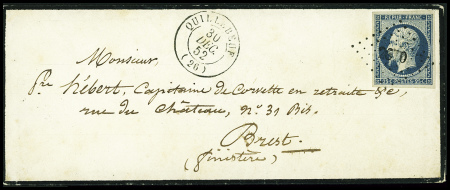 QUILLEBEUF
30
DEC.
52
(26)
REPUB. FRANC.
Monsieur,
Pre Hébert, Capitaine de Corvette en retraite &c,
rue du Château, No. 31 Bis.
Brest.
(finistère)